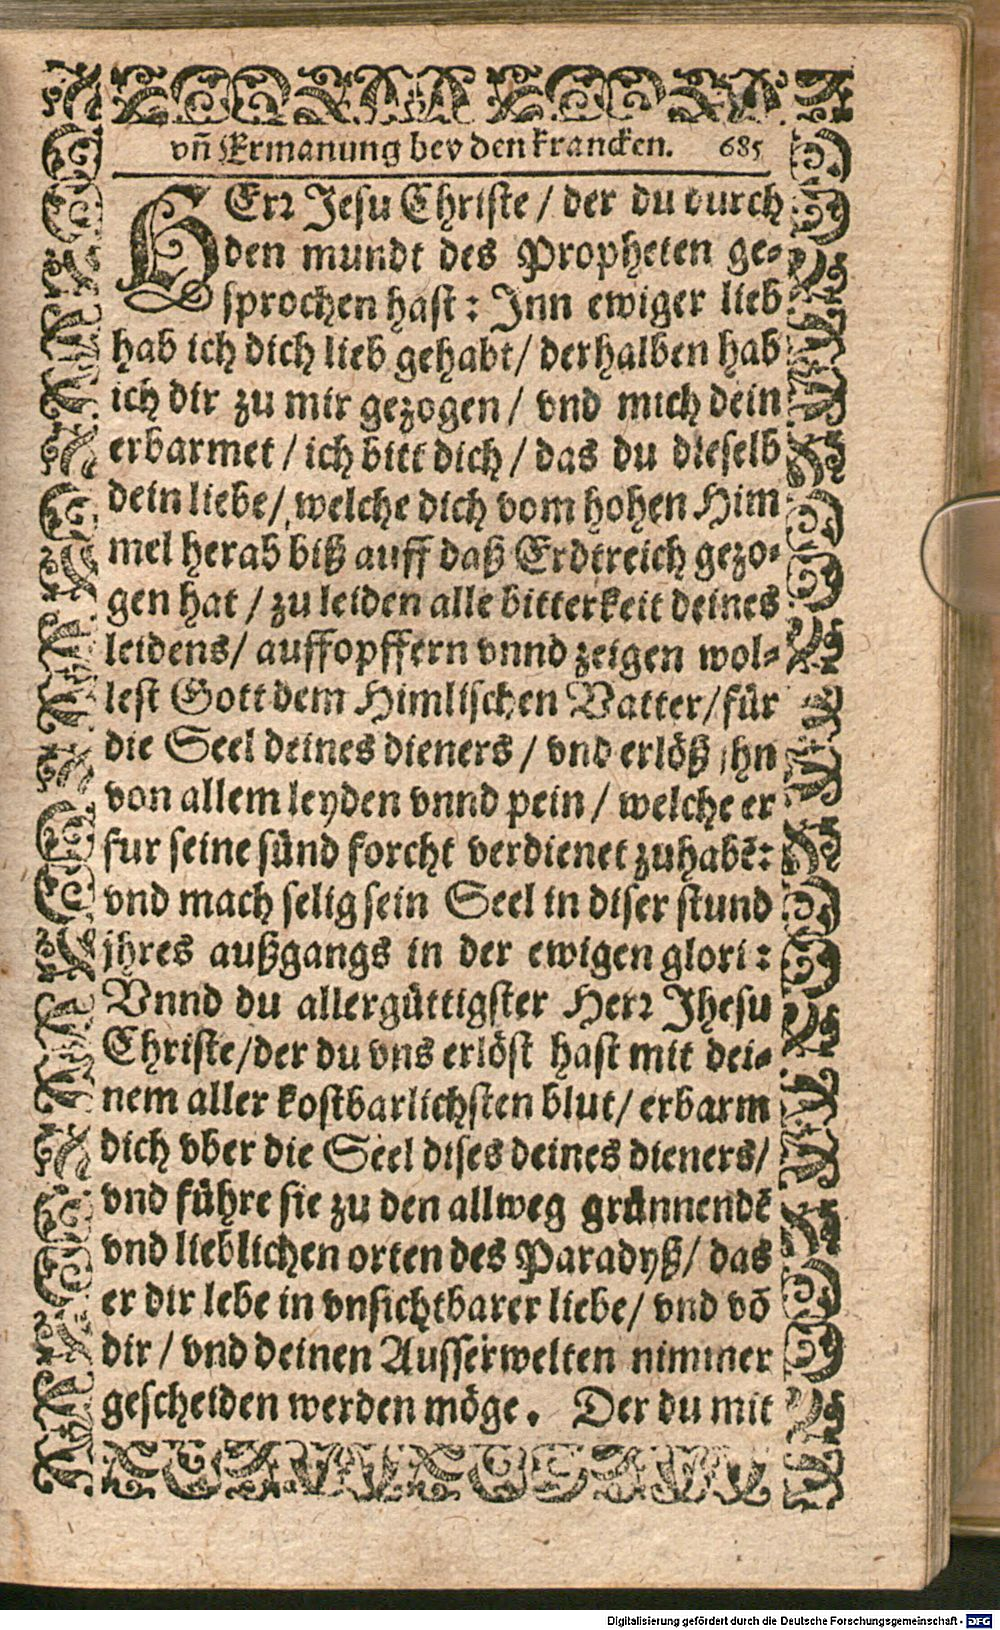 vñ Ermanung bey den krancken. 685
HErꝛ Jesu Christe / der du durch
den mundt des Propheten ge⸗
sprochen hast: Inn ewiger lieb
hab ich dich lieb gehabt/ derhalben hab
ich dir zu mir gezogen / vnd mich dein
erbarmet / ich bitt dich / das du dieselb
dein liebe/ welche dich vom hohen Him
mel herab biß auff daß Erdtreich gezo⸗
gen hat / zu leiden alle bitterkeit deines
leidens/ auffopffern vnnd zeigen wol⸗
lest Gott dem Himlischen Vatter/ für
die Seel deines dieners / vnd erlöß ihn
von allem leyden vnnd pein / welche er
fur seine sünd forcht verdienet zuhabē:
vnd mach selig sein Seel in diser stund
jhres außgangs in der ewigen glori:
Vnnd du allergüttigster Herꝛ Jhesu
Christe/ der du vns erlöst hast mit dei⸗
nem aller kostbarlichsten blut/ erbarm
dich vber die Seel dises deines dieners/
vnd führe sie zu den allweg grünnendē
vnd lieblichen orten des Paradyß/ das
er dir lebe in vnsichtbarer liebe/ vnd vō
dir / vnd deinen Ausserwelten nimmer
gescheiden werden möge. Der du mit
Digitalisierung gefördert durch die Deutsche Forschungsgemeinschaft - DFG